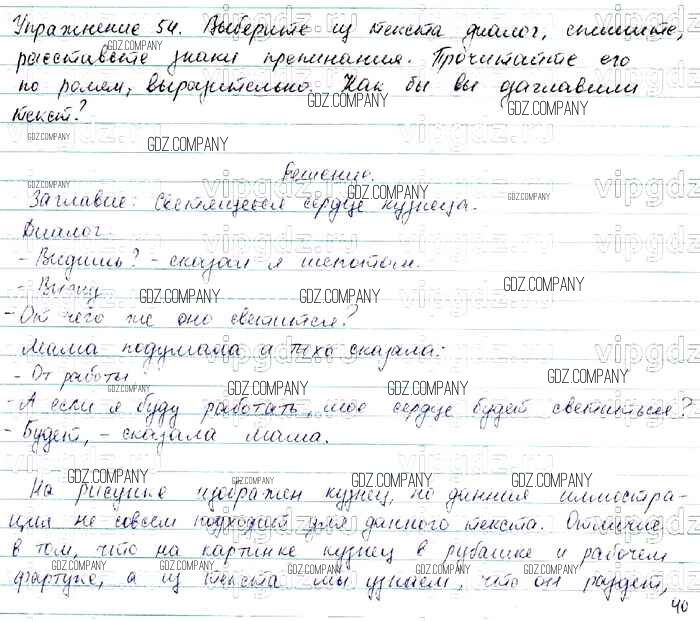 Упражнение 54. Выберите из текста диалог, спишите,
расставьте знаки препинания. Прочитайте его
по ролям, выразительно. Как бы вы озаглавили
текст?
Решение.
Заглавие: Светящееся сердце кузнеца.
Диалог.
- Видишь? - сказал я шепотом.
- Вижу
- От чего же оно светится?
Мама подумала и тихо сказала:
- От работы.
- А если я буду работать, мое сердце будет светиться?
- Будет, - сказала мама.
На рисунке изображен кузнец, но данная иллюстра-
ция не совсем подходит для данного текста. Отличие
в том, что на картинке кузнец в рубашке и рабочем
фартуке, а из текста мы узнаем, что он раздет,
40
GDZ.COMPANY
vipgdz.ru